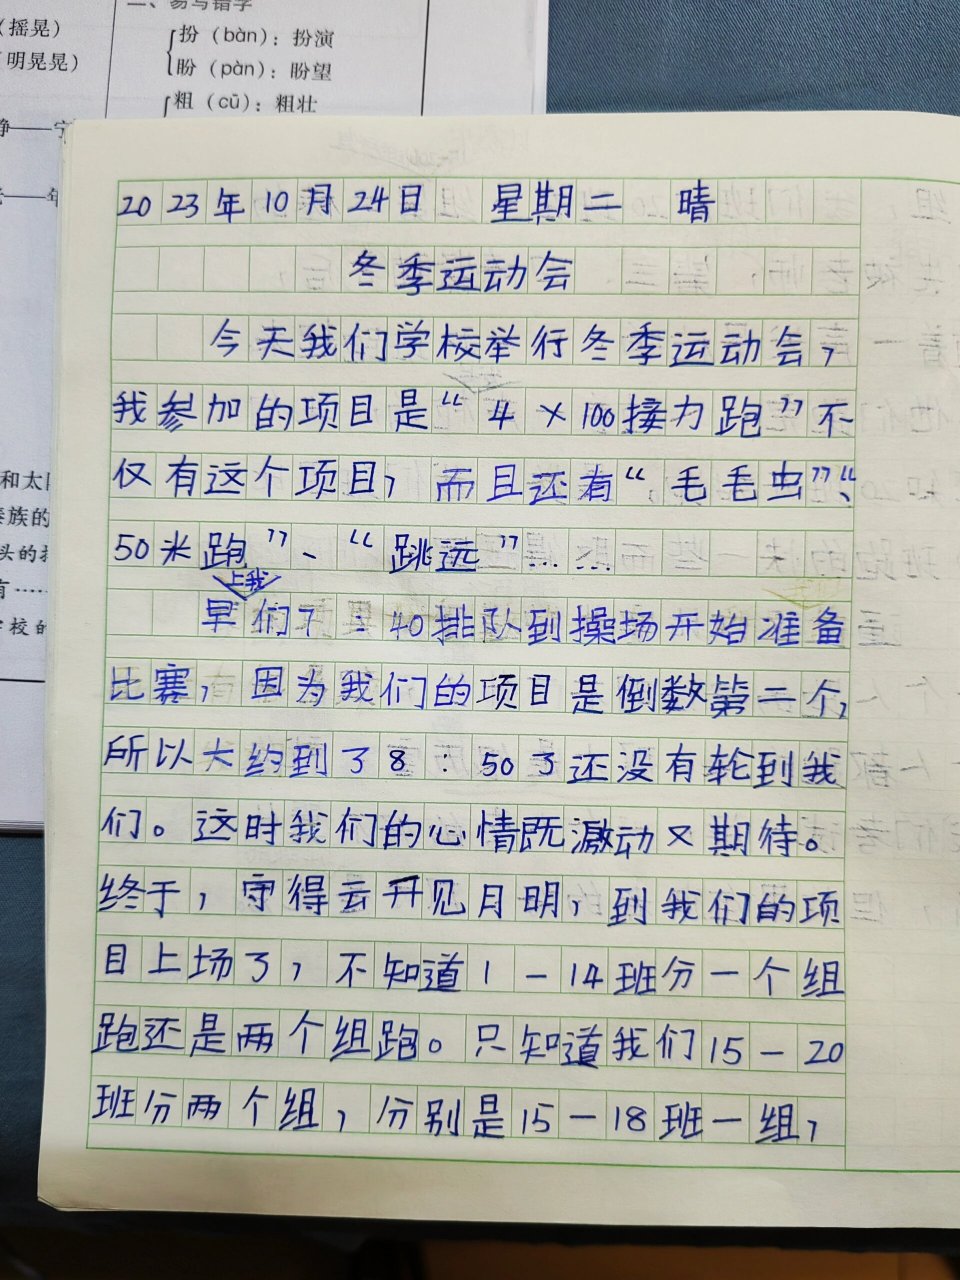 (摇晃)
(明晃晃)
二、易写错字
扮 (bàn)：扮演
盼 (pàn)：盼望
粗 (cū)：粗壮
和太
族的
头的
有……
学校的
2023年10月24日 星期二 晴
冬季运动会
今天我们学校举行冬季运动会，
我参加的项目是“4×100接力跑”不
仅有这个项目，而且还有“毛毛虫”“、
50米跑”、“跳远”……
上我
早们7：40排队到操场开始准备
比赛，因为我们的项目是倒数第二个，
所以大约到了8：50了还没有轮到我
们。这时我们的心情既激动又期待。
终于，守得云开见月明，到我们的项
目上场了，不知道1－14班分一个组
跑还是两个组跑。只知道我们15－20
班分两个组，分别是15－18班一组，